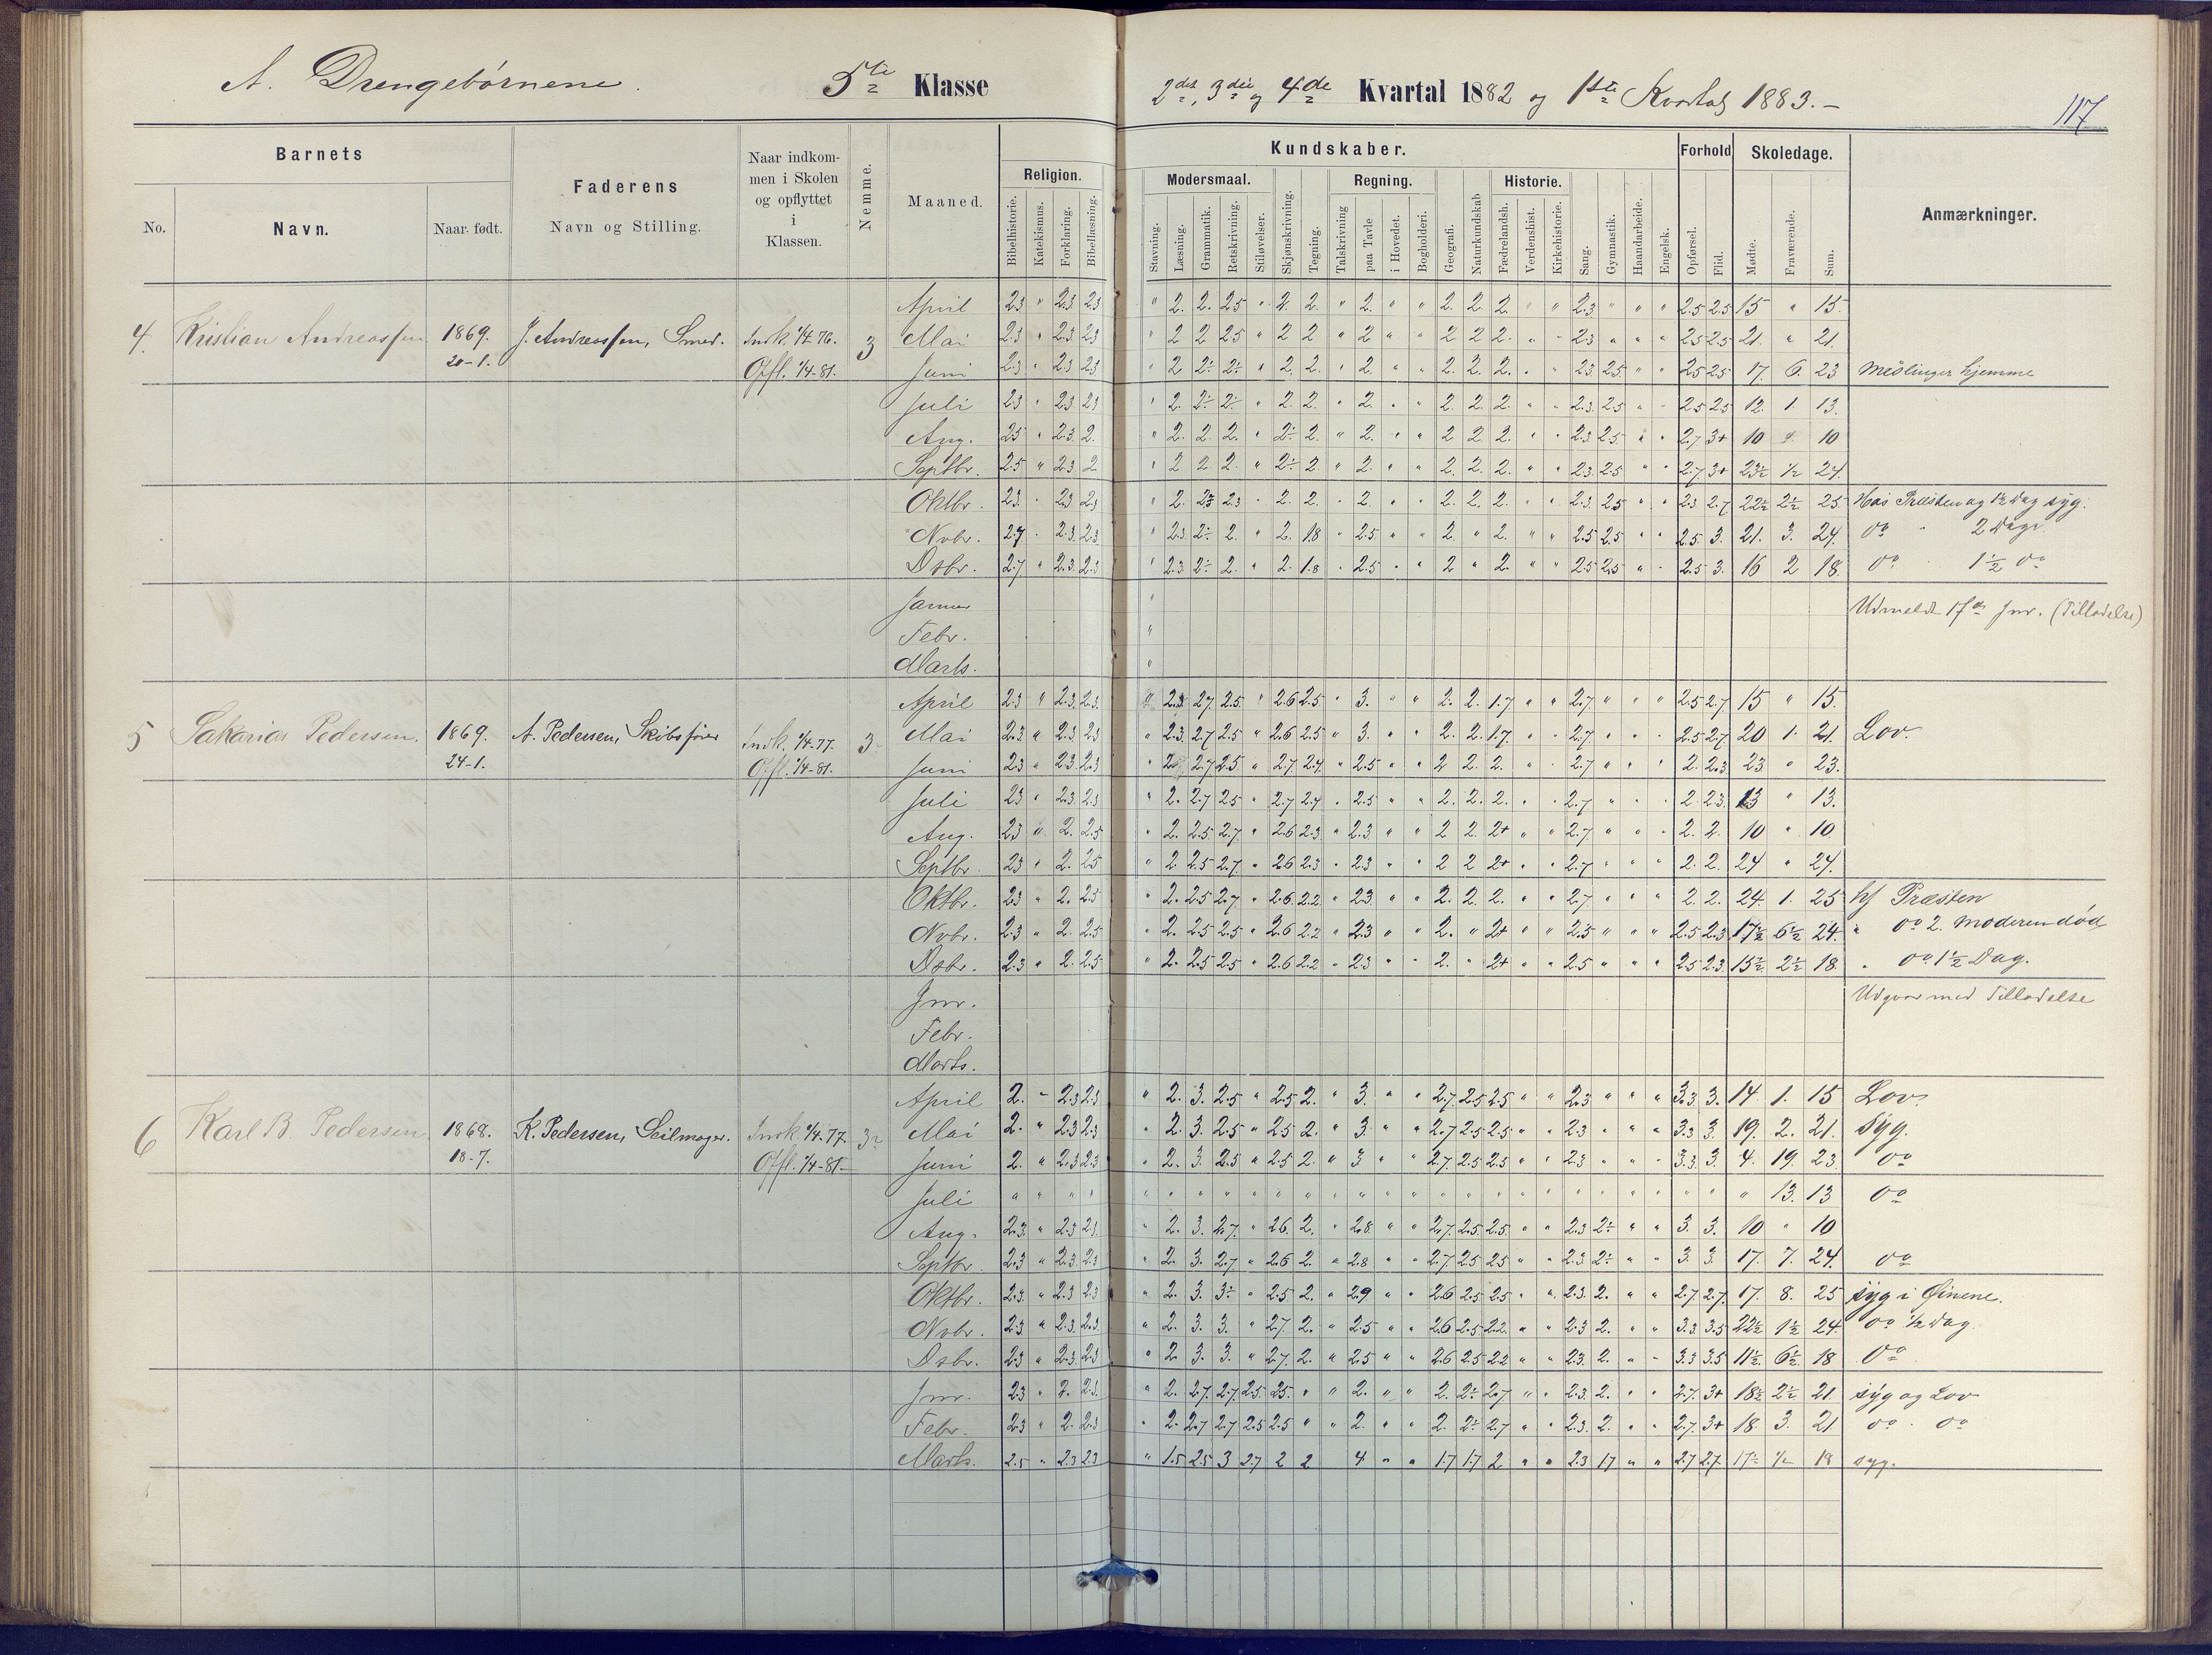 A. Drengebørnene. 5te Klasse 2det, 3die og 4de Kvartal 1882 og 1ste Kvartal 1883.-
117
Barnets
No. Navn. Naar født.
Faderens
Navn og Stilling.
Naar indkom-
men i Skolen
og opflyttet
i
Klassen.
Nemme.
Maaned.
Kundskaber.
Religion.
Bibelhistorie. Katekismus. Forklaring. Bibellæsning.
Modersmaal.
Stavning. Læsning. Grammatik. Retskrivning. Stiløvelser.
Skjønskrivning. Tegning.
Regning.
Talskrivning paa Tavle i Hovedet. Bogholderi.
Geografi. Naturkundskab
Historie.
Fædrelandsh. Verdenshist. Kirkehistorie.
Sang. Gymnastik. Haandarbeide. Engelsk.
Forhold
Opførsel. Flid.
Skoledage.
Mødte. Fraværende. Sum.
Anmærkninger.
4. Kristian Andreassen 1869. 20-1. J. Andreassen, Smed. Opfl. 1/4-81. 3
April 2.3 " 2.3 2.3 " 2. 2. 2.5 " 2. 2. " 2. " " 2. 2. 2. " " 2.3 " " " 2.5 2.5 15 " 15.
Mai 2.3 " 2.3 2.3 " 2 2 2.5 " 2 2 " 2 " " 2 2 2. " " 2.3 " " " 2.5 2.5 21. " 21.
Juni 2.3 " 2.3 2.3 " 2 2÷ 2÷ " 2. 2. " 2. " " 2. 2. 2. " " 2.3 2.5 " " 2.5 2.5 17. 6. 23 Meslinger hjemme
Juli 2.3 " 2.3 2.3 " 2. 2÷ 2÷ " 2. 2. " 2. " " 2. 2. 2. " " 2.3 2.5 " " 2.5 2.5 12. 1. 13.
Aug. 2.5 " 2.3. 2. " 2. 2. 2. " 2÷ 2. " 2. " " 2 2 2. " " 2.3 2.5 " " 2.7 3+ 10 " 10
Septbr. 2.5 " 2.3 2 " 2 2 2. " 2÷ 2 " 2. " " 2. 2. 2. " " 2.3 2.5 " " 2.7 3+ 23½ ½ 24.
Oktbr. 2.3 " 2.3 2.3 " 2. 2.3 " 2. 2. " 2 " " 2. 2. 2. " " 2.3 2.5 " " 2.3 2.7 22½ 2½ 25. Hos Præsten og 1½ Dag syg.
Novbr. 2.7 " 2.3. 2.3. " 2.3. 2÷ 2. " 2. 1.8 " 2.5 " " 2. " 2. " " 2.5 2.5 " " 2.5 3. 21. 3. 24. do " 2 Dage
Dsbr. 2.7 " 2.3. 2.3 " 2.3. 2÷ 2. " 2. 1.8 " 2.5 " " 2 " 2. " " 2.5 2.5 " " 2.5 3. 16 2 18. do 1½ do
Januar " Udmeldt 17de Jnr. (Tilladelse)
Febr. "
Marts. "
5 Sakarias Pedersen. 1869. 24-1. A. Pedersen, Skibsfører Indk. 1/4-77. Opfl. 1/4-81. 3
April 2.3 " 2.3. 2.3. " 2.3. 2.7. 2.5. " 2.6 2.5 " 3. " " 2. 2. 1.7 " " 2.7. " " " 2.5 2.7 15 " 15.
Mai 2.3 " 2.3 2.3 " 2.3. 2.7 2.5 " 2.6 2.5 " 3. " " 2. 2. 1.7. " " 2.7. " " " 2.5 2.7. 20 1. 21. Lov.
Juni 2.3 " 2.3. 2.3 " 2.7 2.5. " 2.7. 2.4. " 2.5 " " 2 2. 2. " " 2.7 " " " 2. 2.3 23 " 23.
Juli 2.3 " 2.3. 2.3 " 2. 2.7 2.5 " 2.7 2.4 " 2.5 " " 2. 2. 2. " " 2.7 " " " 2. 2.3. 13 " 13.
Aug. 2.3 " 2. 2.5 " 2. 2.5 2.7. " 2.6 2.3. " 2.3 " " 2 2. 2+ " " 2.7. " " " 2. 2. 10 " 10.
Septbr. 2.3 " 2. 2.5 " 2. 2.5 2.7. " 2.6 2.3 " 2.3 " " 2 2 2+ " " 2.7 " " " 2. 2. 24 " 24.
Oktbr. 2.3 " 2. 2.5 " 2. 2.5 2.7 " 2.6. 2.2 " 2.3 " " 2. 2. 2. " " 2.7 " " " 2. 2. 24. 1. 25 Præsten
Nvbr. 2.3 " 2. 2.5 " 2. 2.5 2.5 " 2.6 2.2 " 2.3 " " 2. " 2+ " " 2.5 " " " 2.5 2.3 17½ 6½ 24. " do 2. Moderen død
Dsbr. 2.3 " 2. 2.5 " 2. 2.5 2.5 " 2.6 2.2 " 2.3 " " 2. " 2+ " " 2.5 " " " 2.5 2.3. 15½ 2½ 18. " do 1½ Dag.
Jnr. med Tilladelse
Febr.
Marts.
6 Karl B. Pedersen 1868. 18-7. K. Pedersen, Seilmager. Indk. 1/4-77. Opfl. 1/4-81-
April 2. - 2.3 2.3 " 2. 3. 2.5 " 2.5 2. " 3. " " 2.7. 2.5 2.5 " " 2.3 " " " 3.3. 3. 14 1. 15 Lov.
Mai 2. " 2.3 2.3 " 2. 3. 2.5 " 2.5 2. " 3. " " 2.7 2.5 2.5 " " 2.3 " " " 3.3 3. 19. 2. 21. syg.
Juni 2. " 2.3 2.3 " 2. 3. 2.5 " 2.5 2. " 3 " " 2.7. 2.5 2.5 " " 2.3 " " " 3.3. 3. 4. 19. 23. do
Juli " " " " " " " " " " " " " " " " " " " " " " " " " " " 13. 13 do
Aug. 2.3. " 2.3 2.3. " 2. 3. 2.7. " 2.6. 2. " 2.8 " " 2.7. 2.5 2.5. " " 2.3 2÷ " " 3. 3. 10 " 10
Septbr. 2.3 " 2.3. 2.3 " 2. 3. 2.7 " 2.6 2. " 2.8 " " 2.7. 2.5 2.5 " " 2.3 2÷ " " 3. 3. 17. 7. 24. do
Oktbr. 2.3. " 2.3 2.3 " 2. 3. 3÷ " 2.5 2. " 2.9 " " 2.6 2.5 2.5 " " 2.3. 2. " " 2.7 2.7. 17. 8. 25 syg i Øinene.
Nvbr. 2.3 " 2.3. 2.3. " 2. 3. 3. " 2.7 2. " 2.5 " " 2.6 2.5 2.2. " " 2.3 2. " " 3.3 3.5 22½ 1½ 24. do ½ Dag.
Dsbr. 2.3 " 2.3. 2.3 " 2 3. 3. " 2.7. 2. " 2.5 " " 2.6 2.5 2.2 " " 2.3. 2. " " 3.3 3.5 11½ 6½ 18 do
Jnr. 2.3 " 2. 2.3. " 2. 2.7. 2.7. 2.5. 2.5. " " 2. " " 2. 2÷ 2.7 " " 2.3. 2. " " 2.7. 3+ 18½ 2½ 21. syg og Lov
Febr. 2.3 " 2. 2.3 " 2. 2.7 2.7 2.5 2.5 " " 2. " " 2. 2÷ 2.7 " " 2.3. 2. " " 2.7. 3+ 18. 3. 21. do do
Marts. 2.5 " 2.3 2.3 " 1.5 2.5 3 2.7 2 2 4 " " 1.7 1.7 2 " " 2.3 1.7 " " 2.7 2.7. 17½ ½ 18 syg.